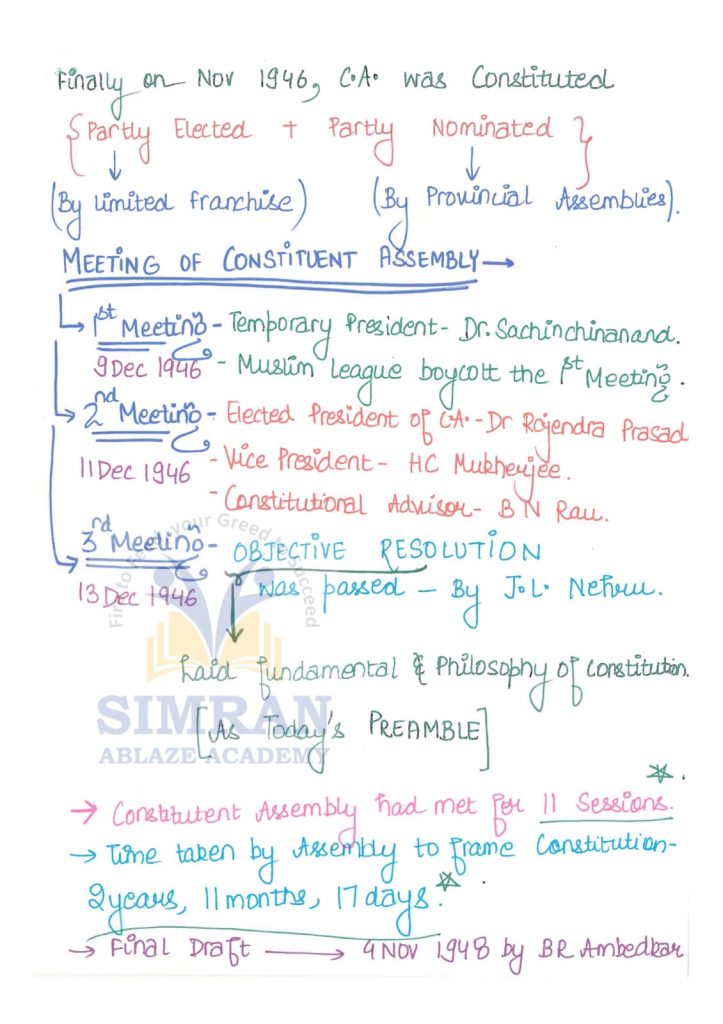 Finally on Nov 1946, C.A. was Constituted
{Partly Elected + Partly Nominated}
(By limited franchise) (By Provincial Assemblies).
MEETING OF CONSTITUENT ASSEMBLY→
1st Meeting - Temporary President - Dr. Sachinchinanand.
9 Dec 1946 - Muslim League boycott the 1st Meeting.
2nd Meeting - Elected President of C.A. - Dr Rajendra Prasad
11 Dec 1946 - Vice President - HC Mukherjee.
- Constitutional Advisor - B N Rau.
3rd Meeting - OBJECTIVE RESOLUTION
13 Dec 1946 was passed - By J.L. Nehru.
Laid fundamental & Philosophy of Constitution.
[As Today's PREAMBLE]
SIMRAN
ABLAZE ACADEMY
→ Constitutent Assembly had met for 11 Sessions.
→ Time taken by Assembly to frame Constitution-
2 years, 11 months, 17 days.
→ Final Draft → 4 NOV 1948 by BR Ambedkar